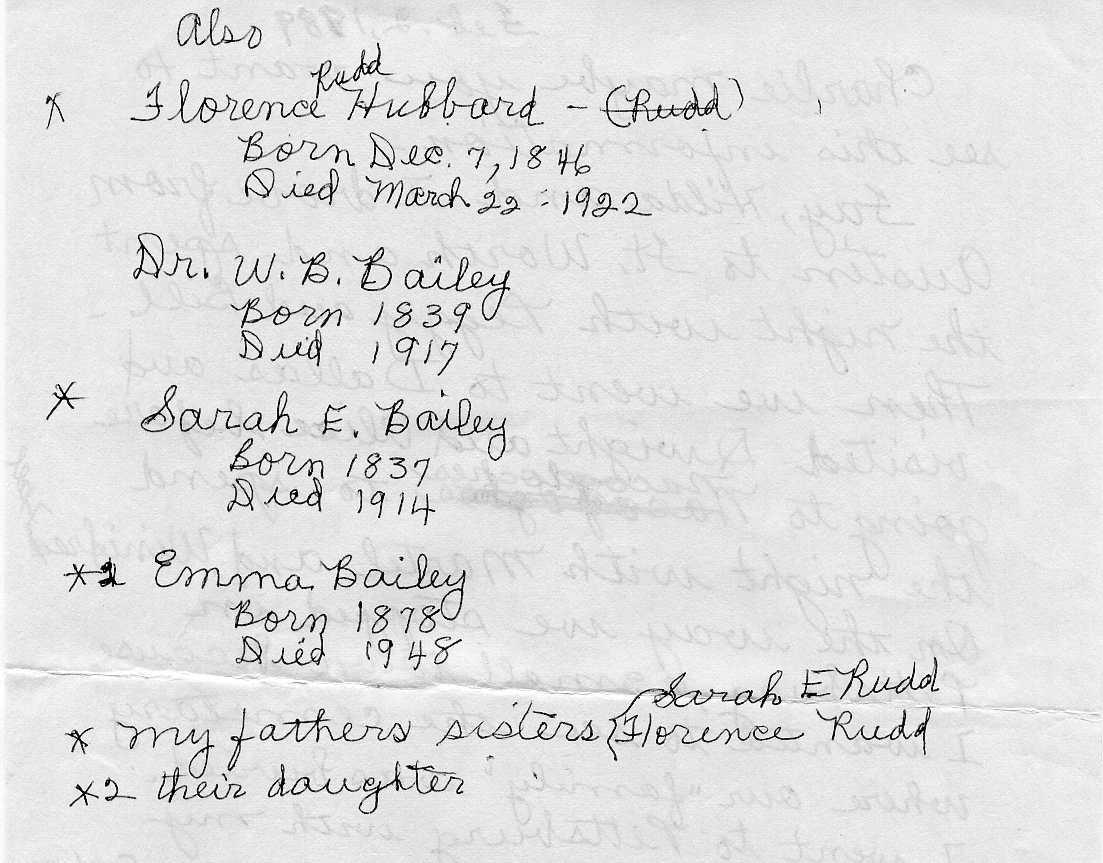 Also
Rudd
* Florence Hubbard - (Rudd)
Born Dec. 7, 1846
Died March 22 - 1922
Dr. W. B. Bailey
Born 1839
Died 1917
* Sarah E. Bailey
Born 1837
Died 1914
*2 Emma Bailey
Born 1878
Died 1948
Sarah E Rudd
* my fathers sisters { Florence Rudd
*2 their daughter